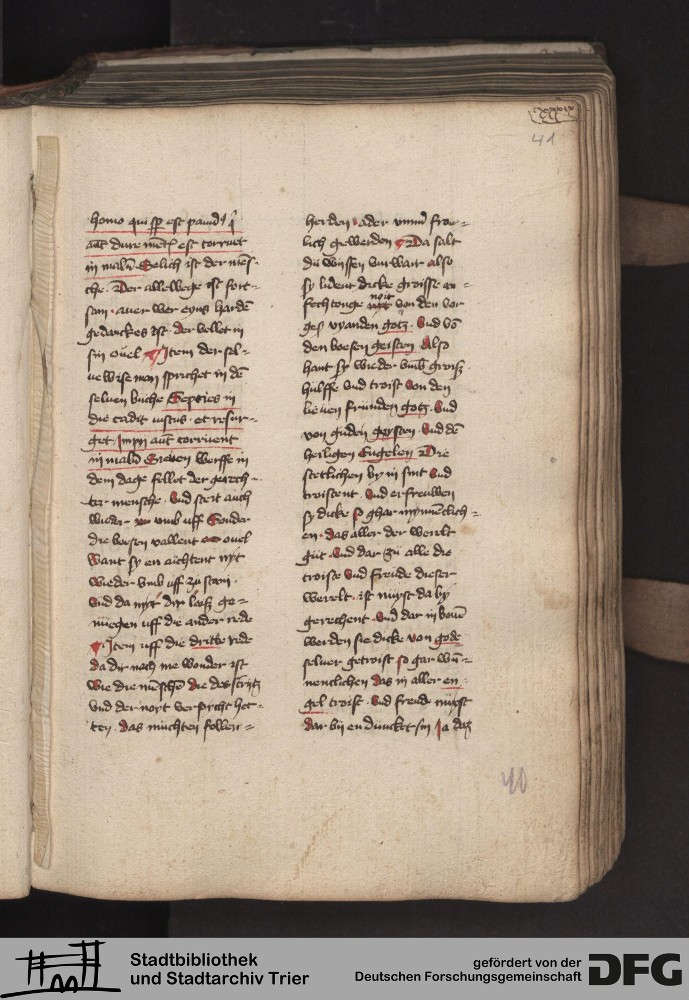 homo qui sp est pauid9 q
aut dure met est corruet
in malu Selich ist der men
che Der allewege ist fort
sam auer wer eyns harde
gedanckes ist der vellet in
sin ouel Item der sel
ue wise man sprichet in de
seluen buche Septies in
die cadit iustus et resur
get Impij aut corruent
in malu Seuen werffe in
dem dage fellet der gerech
ter mensche Vnd steit auch
wieder vmb uff Sonder
die boesen vallent ouel
want sy en achtent nyt
wieder vmb uff zu stain
vnd da myt dir laiß ge
nuegen uff die ander rede
Item uff die dritte rede
da dir noch me wonder ist
wie die mensche die des
vnd der noyt het
ten das muchten follen
herden ader vmm froe
lich gewerden Da salt
du wyssen vurwair also
sy lident dicke groisse an
fechtonge noit von den vor
gen vyanden gotz Vnd vo
den boesen geisten Also
hant sy wieder vmb groiß
hulffe vnd troist von den
lieuen frunden gotz Vnd
von guden geysten Vnd de
heiligen Engelen Die
stetlichen by in sint Vnd
troistent Vnd erfreuwen
sy dicke so ghar mynneclich
en das aller der werelt
gut Vnd dar zu alle die
troiste Vnd freude dieser
werelt ist nuyst da by
gerechent Vnd dar in bouen
werden sie dicke von gode
seluer getroist so gar wu
nenclichen das in aller en
gel troist Vnd freude nuyst
dar by en duncket sin Ja das
41
40
Stadtbibliothek
und Stadtarchiv Trier
gefördert von der
Deutschen Forschungsgemeinschaft
DFG